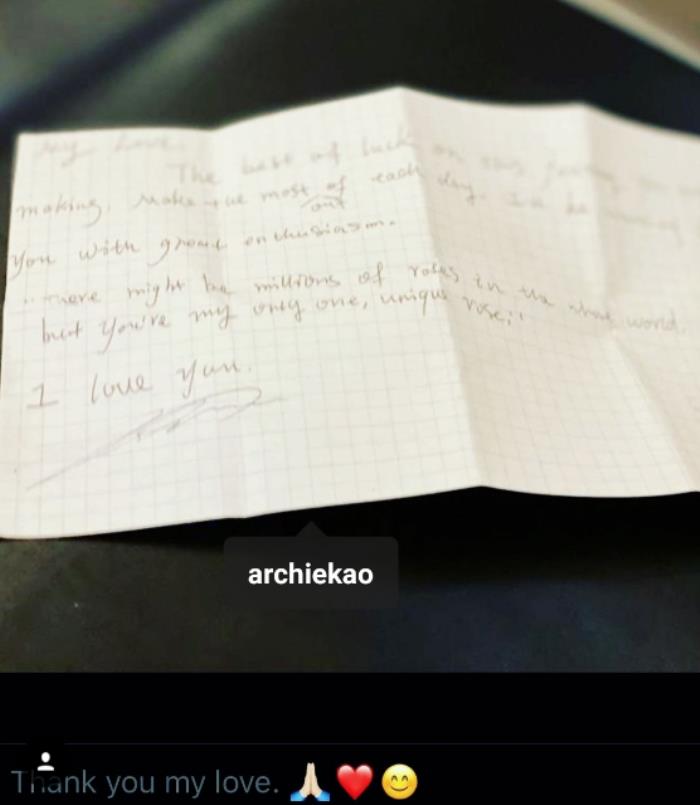 My Love
The best of luck on
making. Make the most of each day.
out
you with great enthusiasm.
"There might be millions of roles in the world.
but you're my only one, unique rose;"
I love you.
archiekao
Thank you my love. 🙏🏻❤️😊